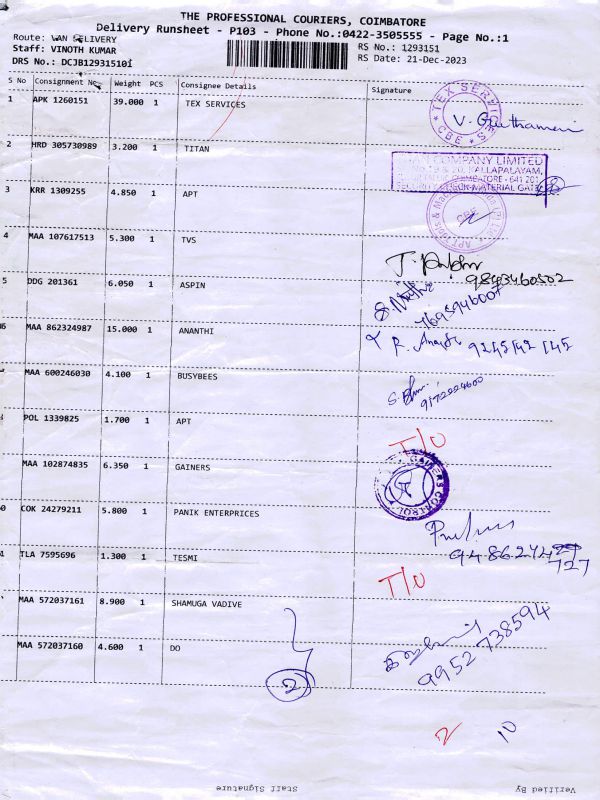 THE PROFESSIONAL COURIERS, COIMBATORE
Delivery Runsheet - P103 - Phone No.:0422-3505555 - Page No.:1
Route: VAN DELIVERY
Staff: VINOTH KUMAR
DRS No.: DCJB12931510i
RS No.: 1293151
RS Date: 21-Dec-2023
S No Consignment No Weight PCS Consignee Details Signature
1 APK 1260151 39.000 1 TEX SERVICES
TEX SERVICES CBE
2 HRD 305730989 3.200 1 TITAN
COMPANY LIMITED
KALLAPALAYAM,
COIMBATORE - 641 201
MATERIAL GATE
3 KRR 1309255 4.850 1 APT
4 MAA 107617513 5.300 1 TVS
9843460502
5 DDG 201361 6.050 1 ASPIN
6 MAA 862324987 15.000 1 ANANTHI
R. 9245142 145
MAA 600246030 4.100 1 BUSYBEES
POL 1339825 1.700 1 APT
T/O
MAA 102874835 6.350 1 GAINERS
GAINERS CONTROL
0 COK 24279211 5.800 1 PANIK ENTERPRICES
727
TLA 7595696 1.300 1 TESMI
T/O
MAA 572037161 8.900 1 SHAMUGA VADIVE
MAA 572037160 4.600 1 DO
9952 738594
2
2 10
Staff Signature Verified By